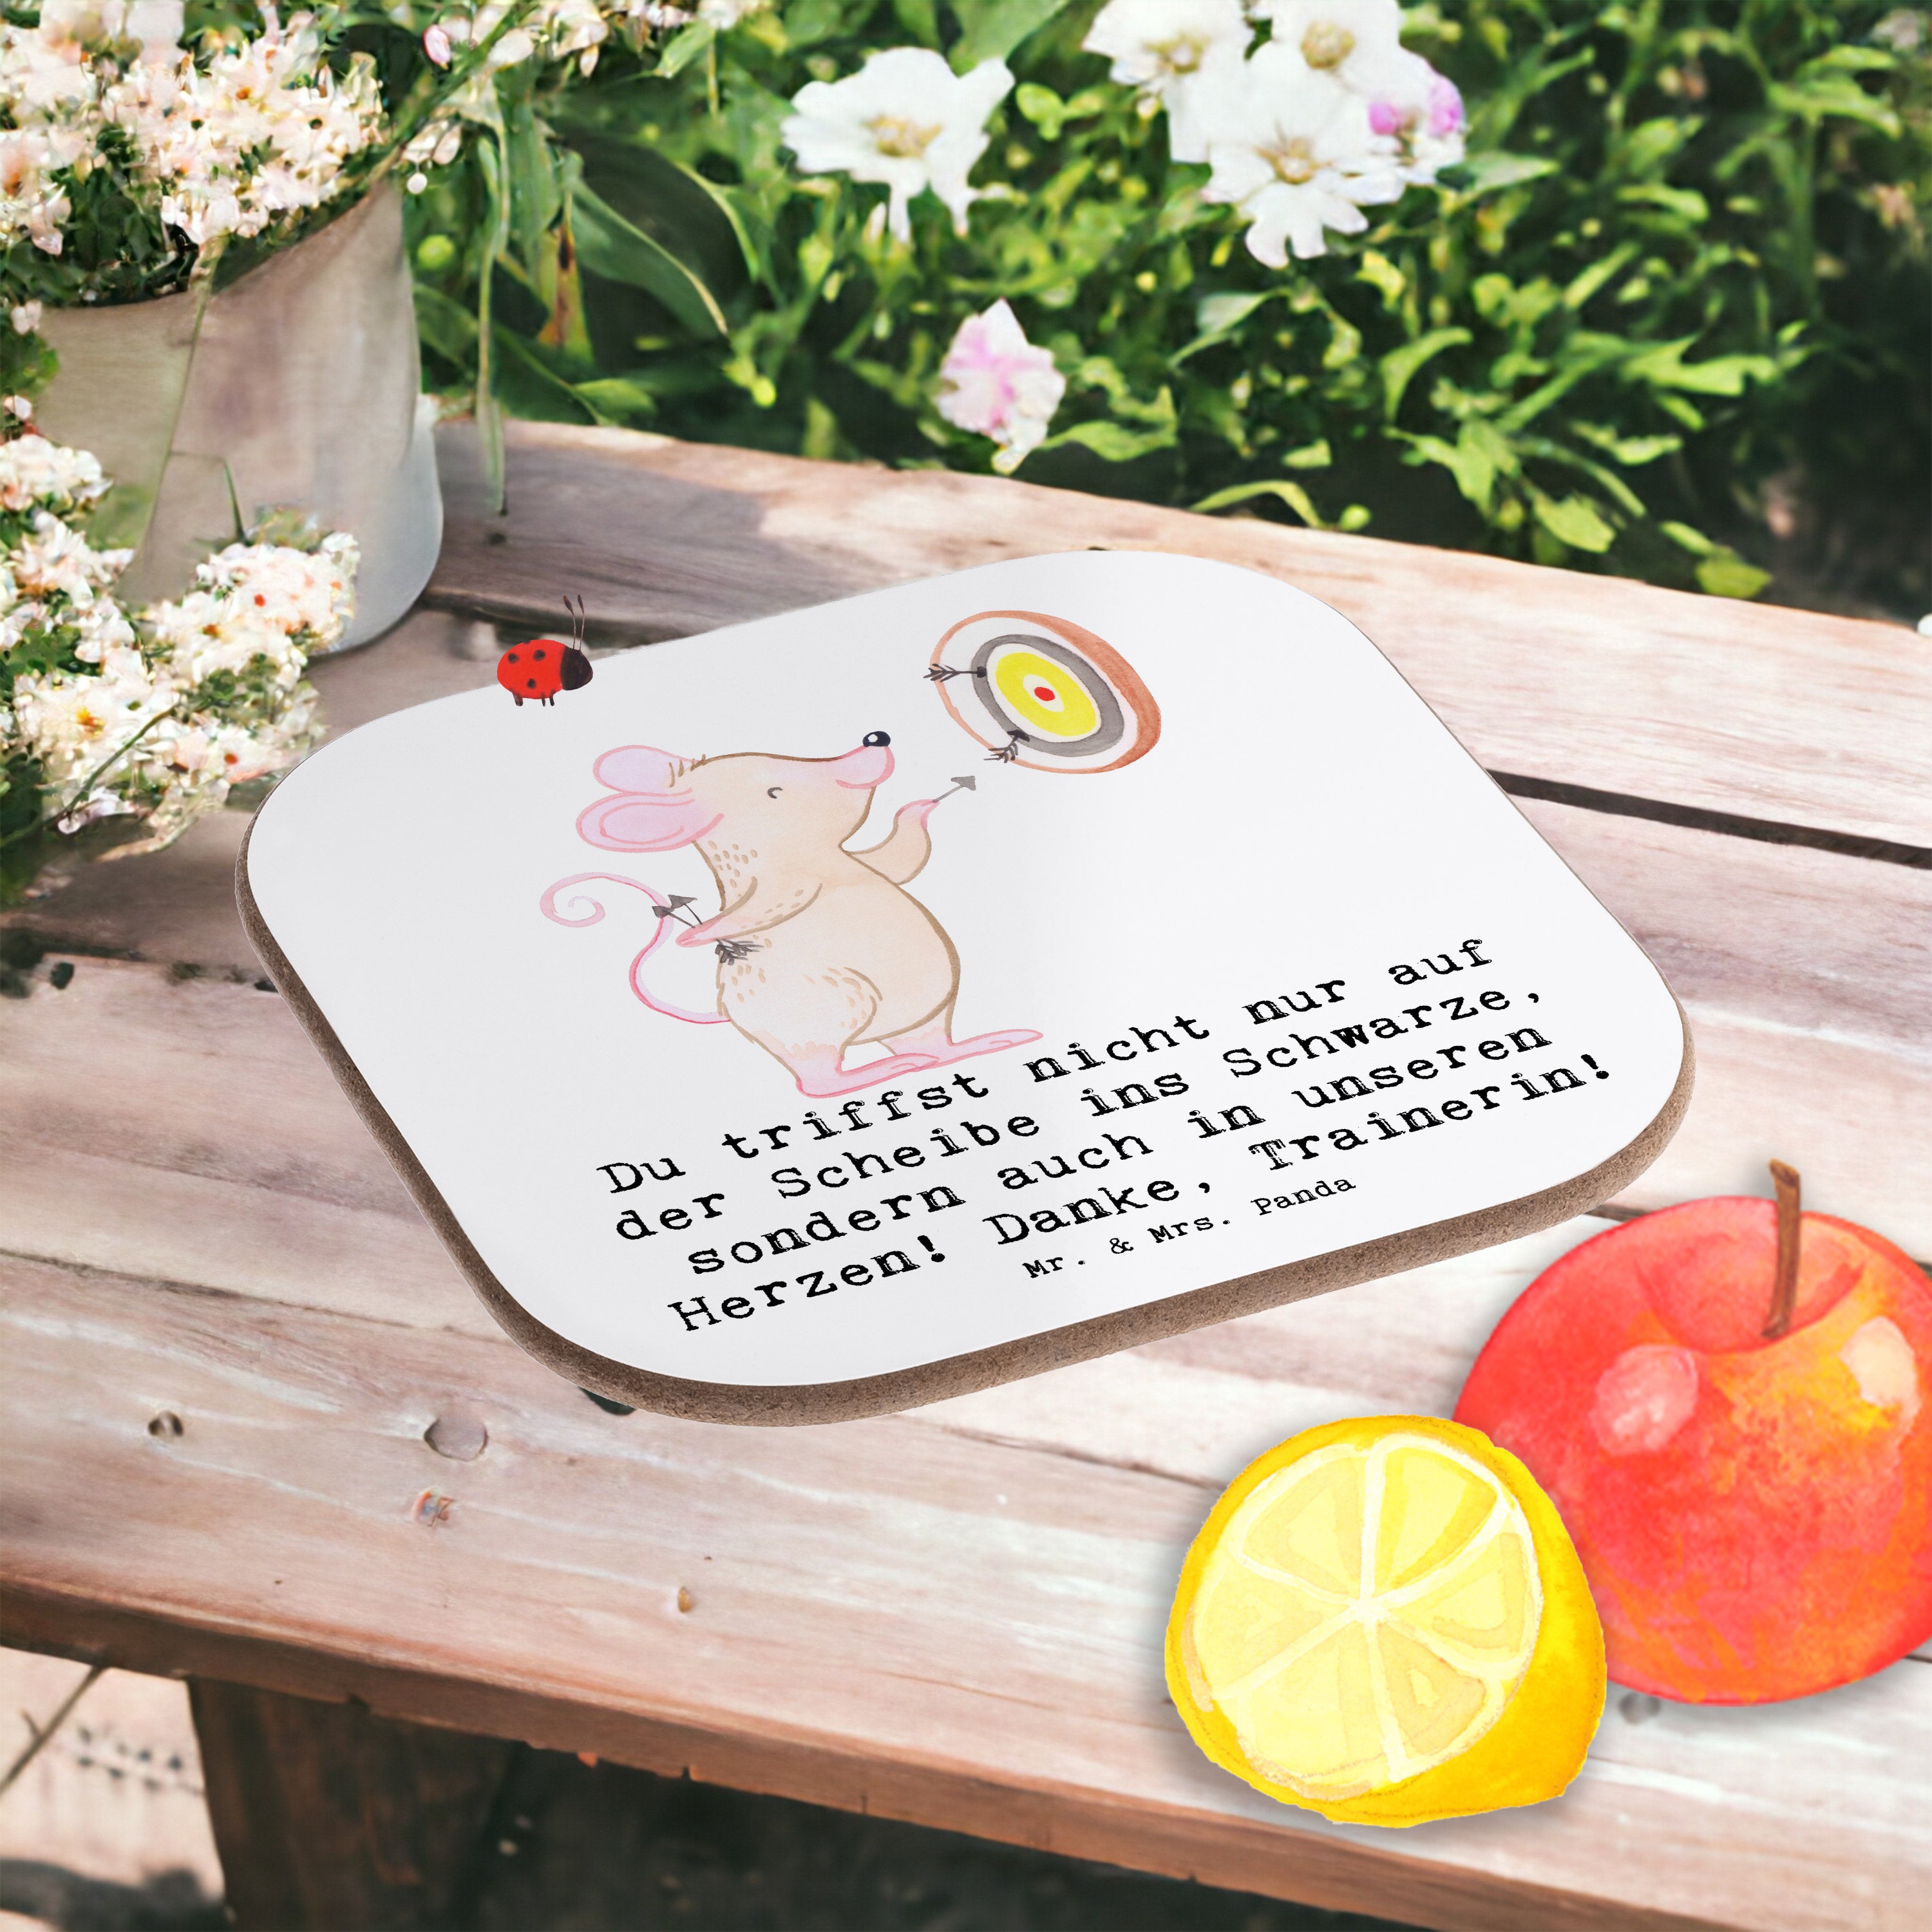 Du triffst nicht nur auf
der Scheibe ins Schwarze,
sondern auch in unseren
Herzen! Danke, Trainerin!
Mr. & Mrs. Panda